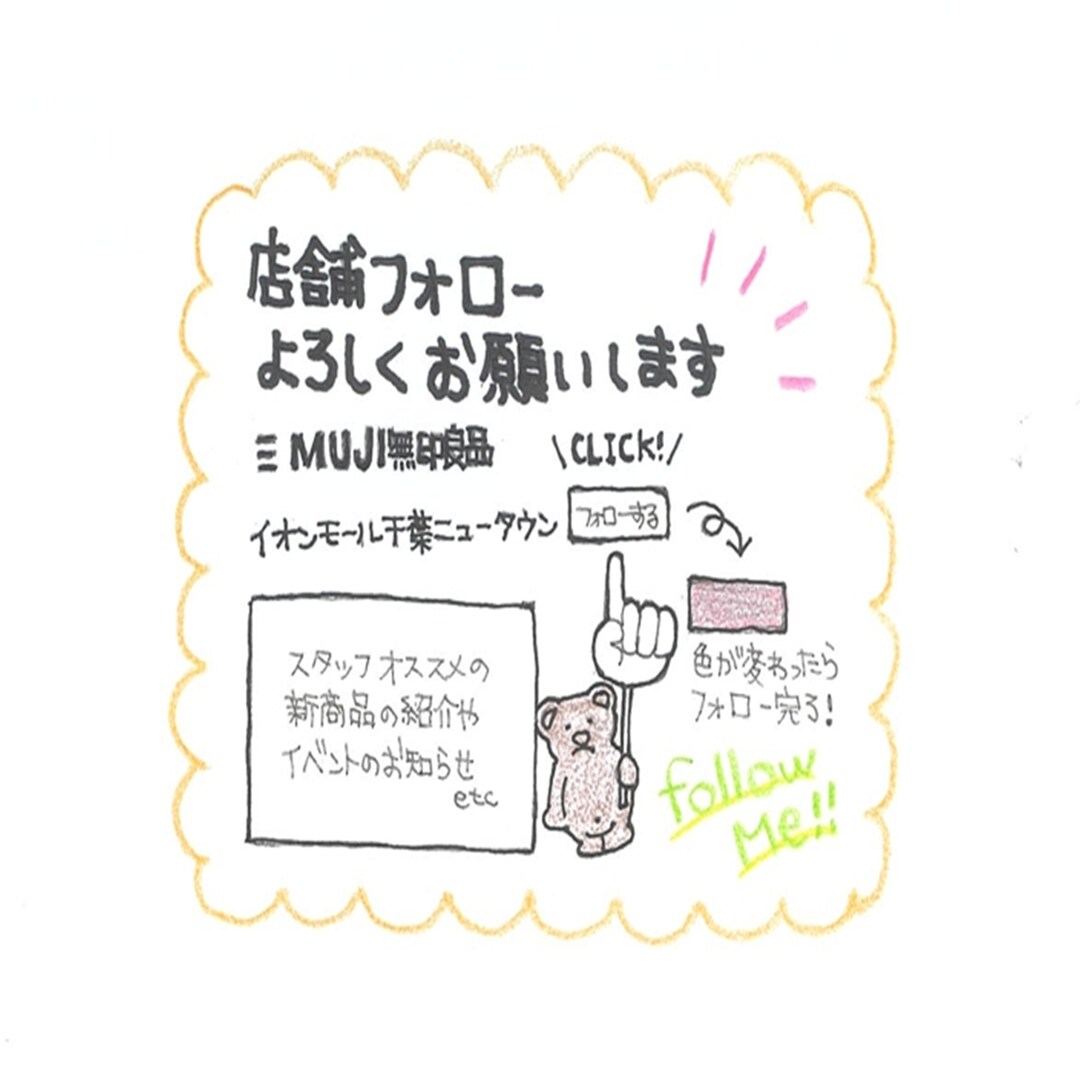 店舗フォロー
よろしくお願いします
MUJI無印良品
\CLICK!/
イオンモール千葉ニュータウン
フォローする
スタッフオススメの
新商品の紹介や
イベントのお知らせ
etc
色が変わったら
フォロー完了!
follow
Me!!